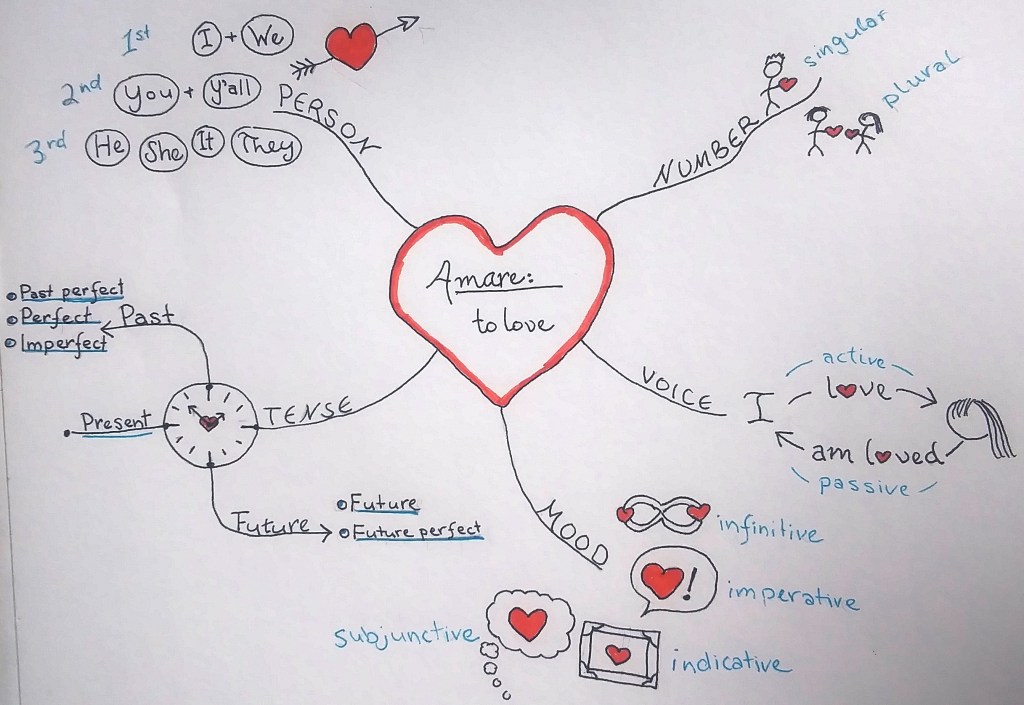 1st I + We
2nd You + Y'all
3rd He She It They
PERSON
NUMBER
singular
plural
Amare:
to love
Past perfect
Perfect
Imperfect
Past
Present
TENSE
Future
Future
Future perfect
VOICE
active
I love
am loved
passive
MOOD
infinitive
!
imperative
subjunctive
indicative